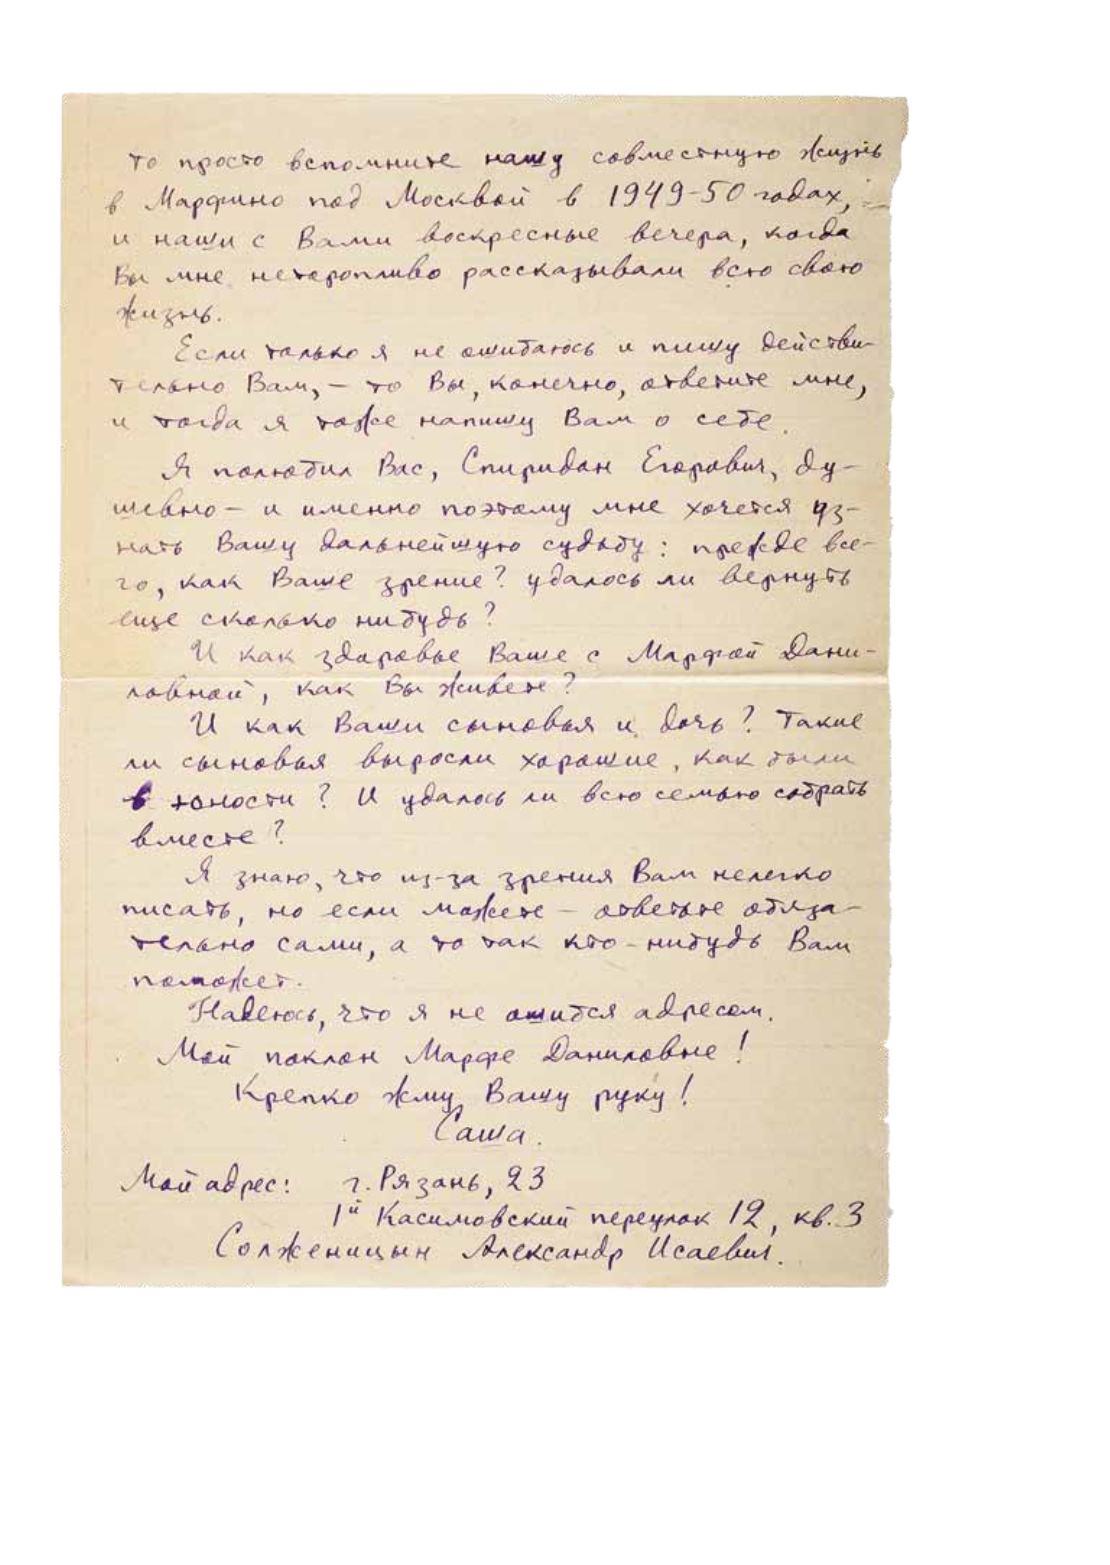 то просто вспомните нашу совместную жизнь
в Марфино под Москвой в 1949-50 годах,
и наши с Вами воскресные вечера, когда
Вы мне неторопливо рассказывали всю свою
жизнь.
Если только я не ошибаюсь и пишу действи-
тельно Вам, – то Вы, конечно, ответите мне,
и тогда я тоже напишу Вам о себе.
Я полюбил Вас, Спиридон Егорович, ду-
шевно – и именно поэтому мне хочется уз-
нать Вашу дальнейшую судьбу: прежде все-
го, как Ваше зрение? удалось ли вернуть
еще сколько нибудь?
И как здоровье Ваше с Марфой Дани-
ловной, как Вы живете?
И как Ваши сыновья и дочь? Такие
ли сыновья выросли хорошие, как были
в юности? И удалось ли всю семью собрать
вместе?
Я знаю, что из-за зрения Вам нелегко
писать, но если можете – ответьте обяза-
тельно сами, а то так кто-нибудь Вам
поможет.
Надеюсь, что я не ошибся адресом.
Мой поклон Марфе Даниловне!
Крепко жму Вашу руку!
Саша.
Мой адрес: г. Рязань, 23
1й Касимовский переулок 12, кв. 3
Солженицын Александр Исаевич.